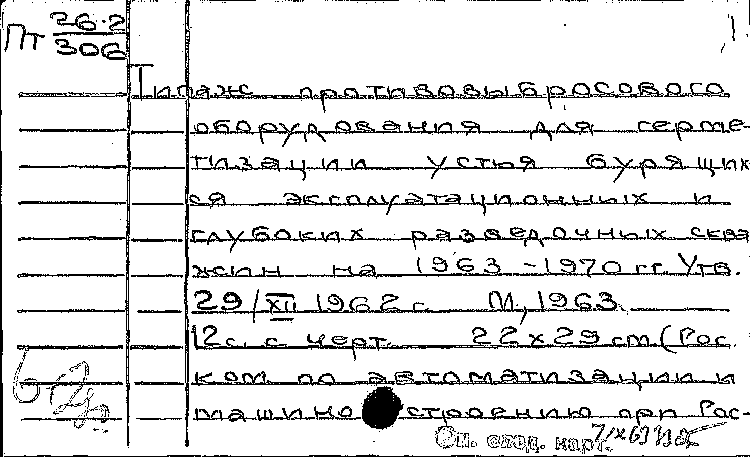 Пт 26.2
306
Типаж противовыбросового
оборудования для герме-
тизации устья бурящих
ся эксплуатационных и
глубоких разведочных сква
жин на 1963-1970 гг. Утв.
29/XII 1962 г. М., 1963
12с. с черт. 22x29 см. (Гос.
ком. по автоматизации и
машиностроению при Гос-
См. след. карт.